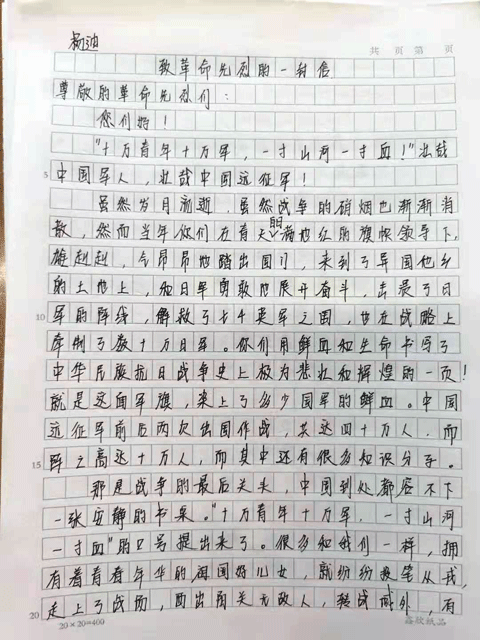 杨油
共 页 第 页
致革命先烈的一封信
尊敬的革命先烈们：
您们好！
"十万青年十万军，一寸山河一寸血！"壮哉
5 中国军人，壮哉中国远征军！
虽然岁月渐逝，虽然战争的硝烟也渐渐消
散，然而当年你们在青天白日满地红的旗帜领导下，
雄赳赳，气昂昂地踏出国门，来到了异国他乡
的土地上，和日军勇敢地展开奋斗，击溃了日
10 军的阵线，解救了七千英军之围，也在战略上
牵制了数十万日军。你们用鲜血和生命书写了
中华民族抗日战争史上极为悲壮和辉煌的一页！
就是这面军旗，染上了多少国军的鲜血。中国
远征军前后两次出国作战，共达四十万人，而
15 阵亡高达十万人，而其中还有很多知识分子。
那是战争的最后关头，中国到处都容不下
一张安静的书桌。"十万青年十万军，一寸山河
一寸血"的口号提出来了。很多和我们一样，拥
有着青春年华的闺阁好儿女，就纷纷投笔从戎，
20 走上了战场，西出阳关无故人，转战域外，有
20×20=400
纸品